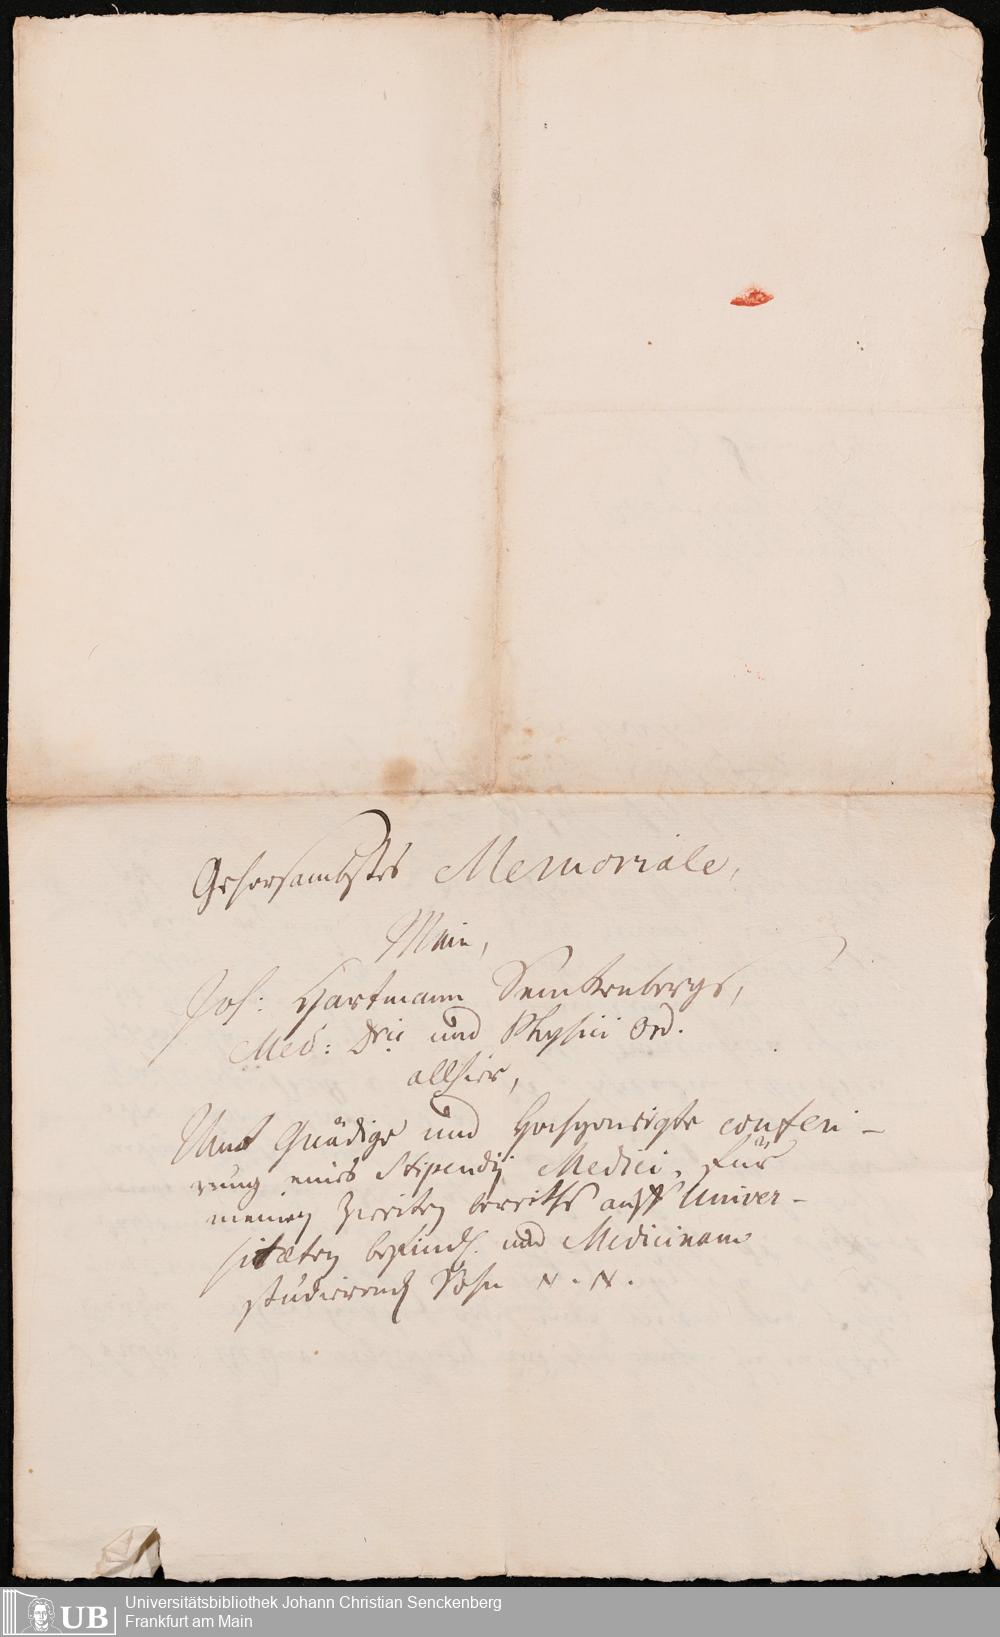 Gehorsambstes Memoriale,
Mein,
Joh: Hartmann Senckenbergs,
Med: Dris und Physici Ord.
allhier,
Umb Gnädige und Hochgeneigte conferi-
rung eines Stipendij Medici, für
meinen zweiten bereiths auff Univer-
sitæten befindl. und Medicinam
studierend Sohn N. N.
UB
Universitätsbibliothek Johann Christian Senckenberg
Frankfurt am Main